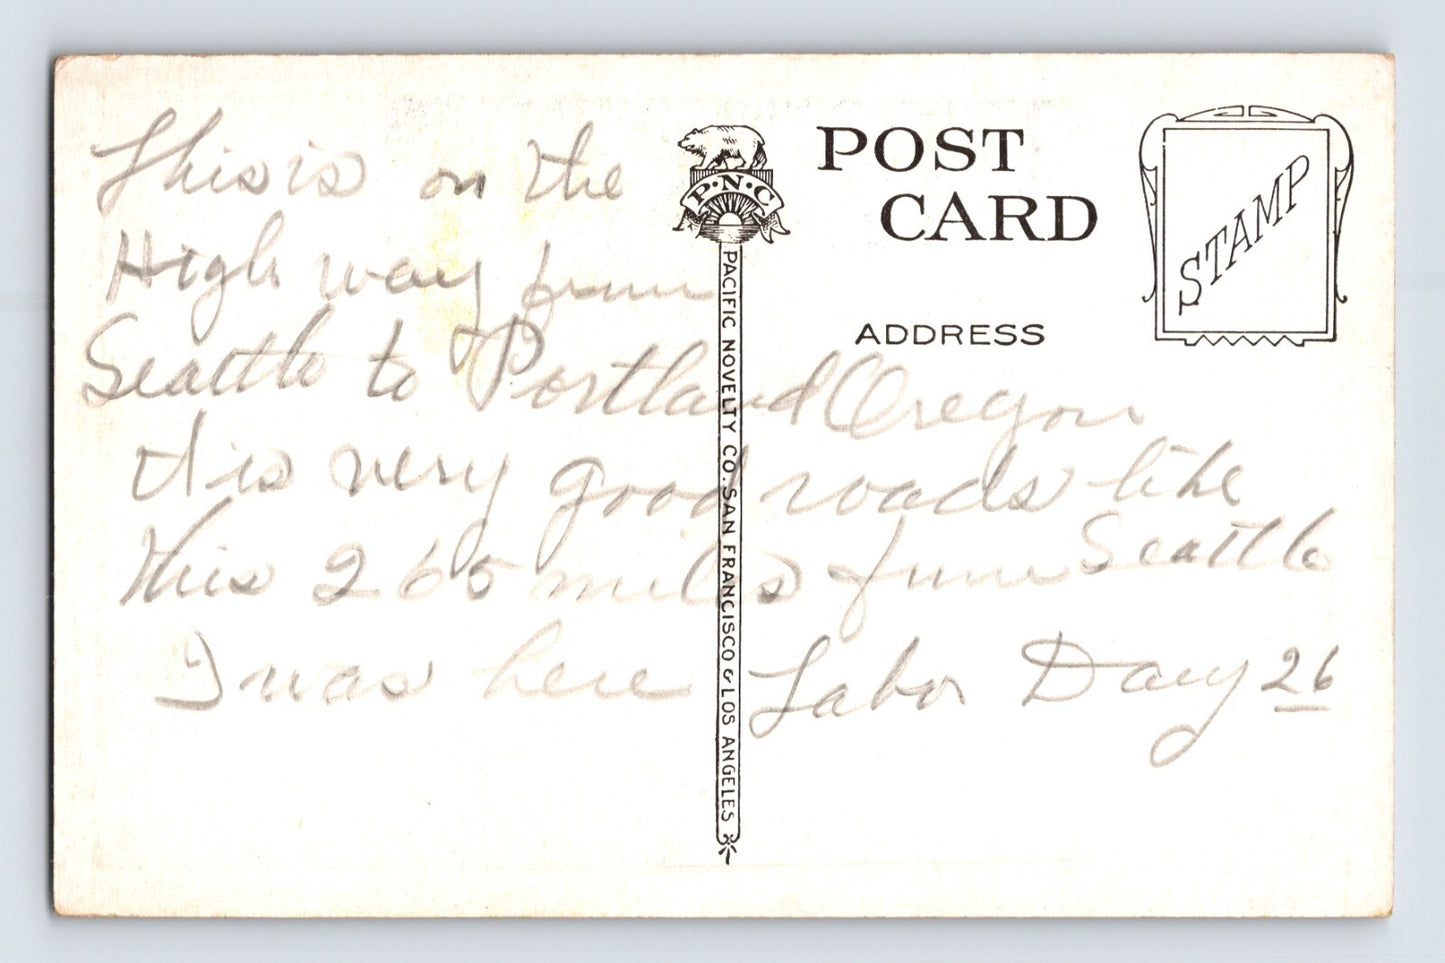 This is on the
High way from
Seattle to Portland Oregon
it is very good roads like
this 265 miles from Seattle
I was here Labor Day 26
P·N·C
PACIFIC NOVELTY CO. SAN FRANCISCO & LOS ANGELES
POST
CARD
ADDRESS
STAMP